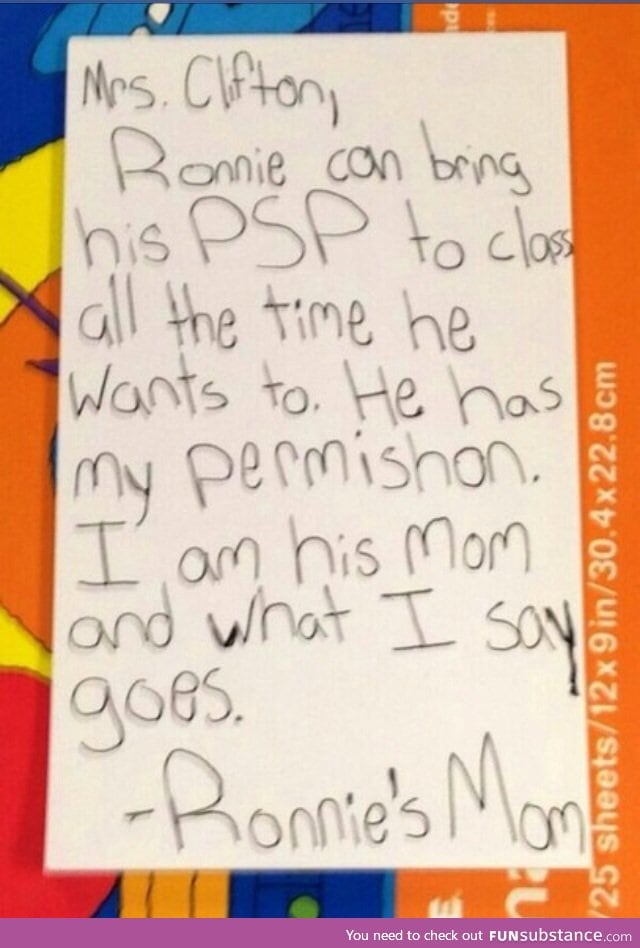 Mrs. Clifton,
Ronnie can bring
his PSP to class
all the time he
wants to. He has
my permishon.
I am his Mom
and what I say
goes.
-Ronnie's Mom
/25 sheets/12x9in/30.4x22.8cm
You need to check out FUNsubstance.com